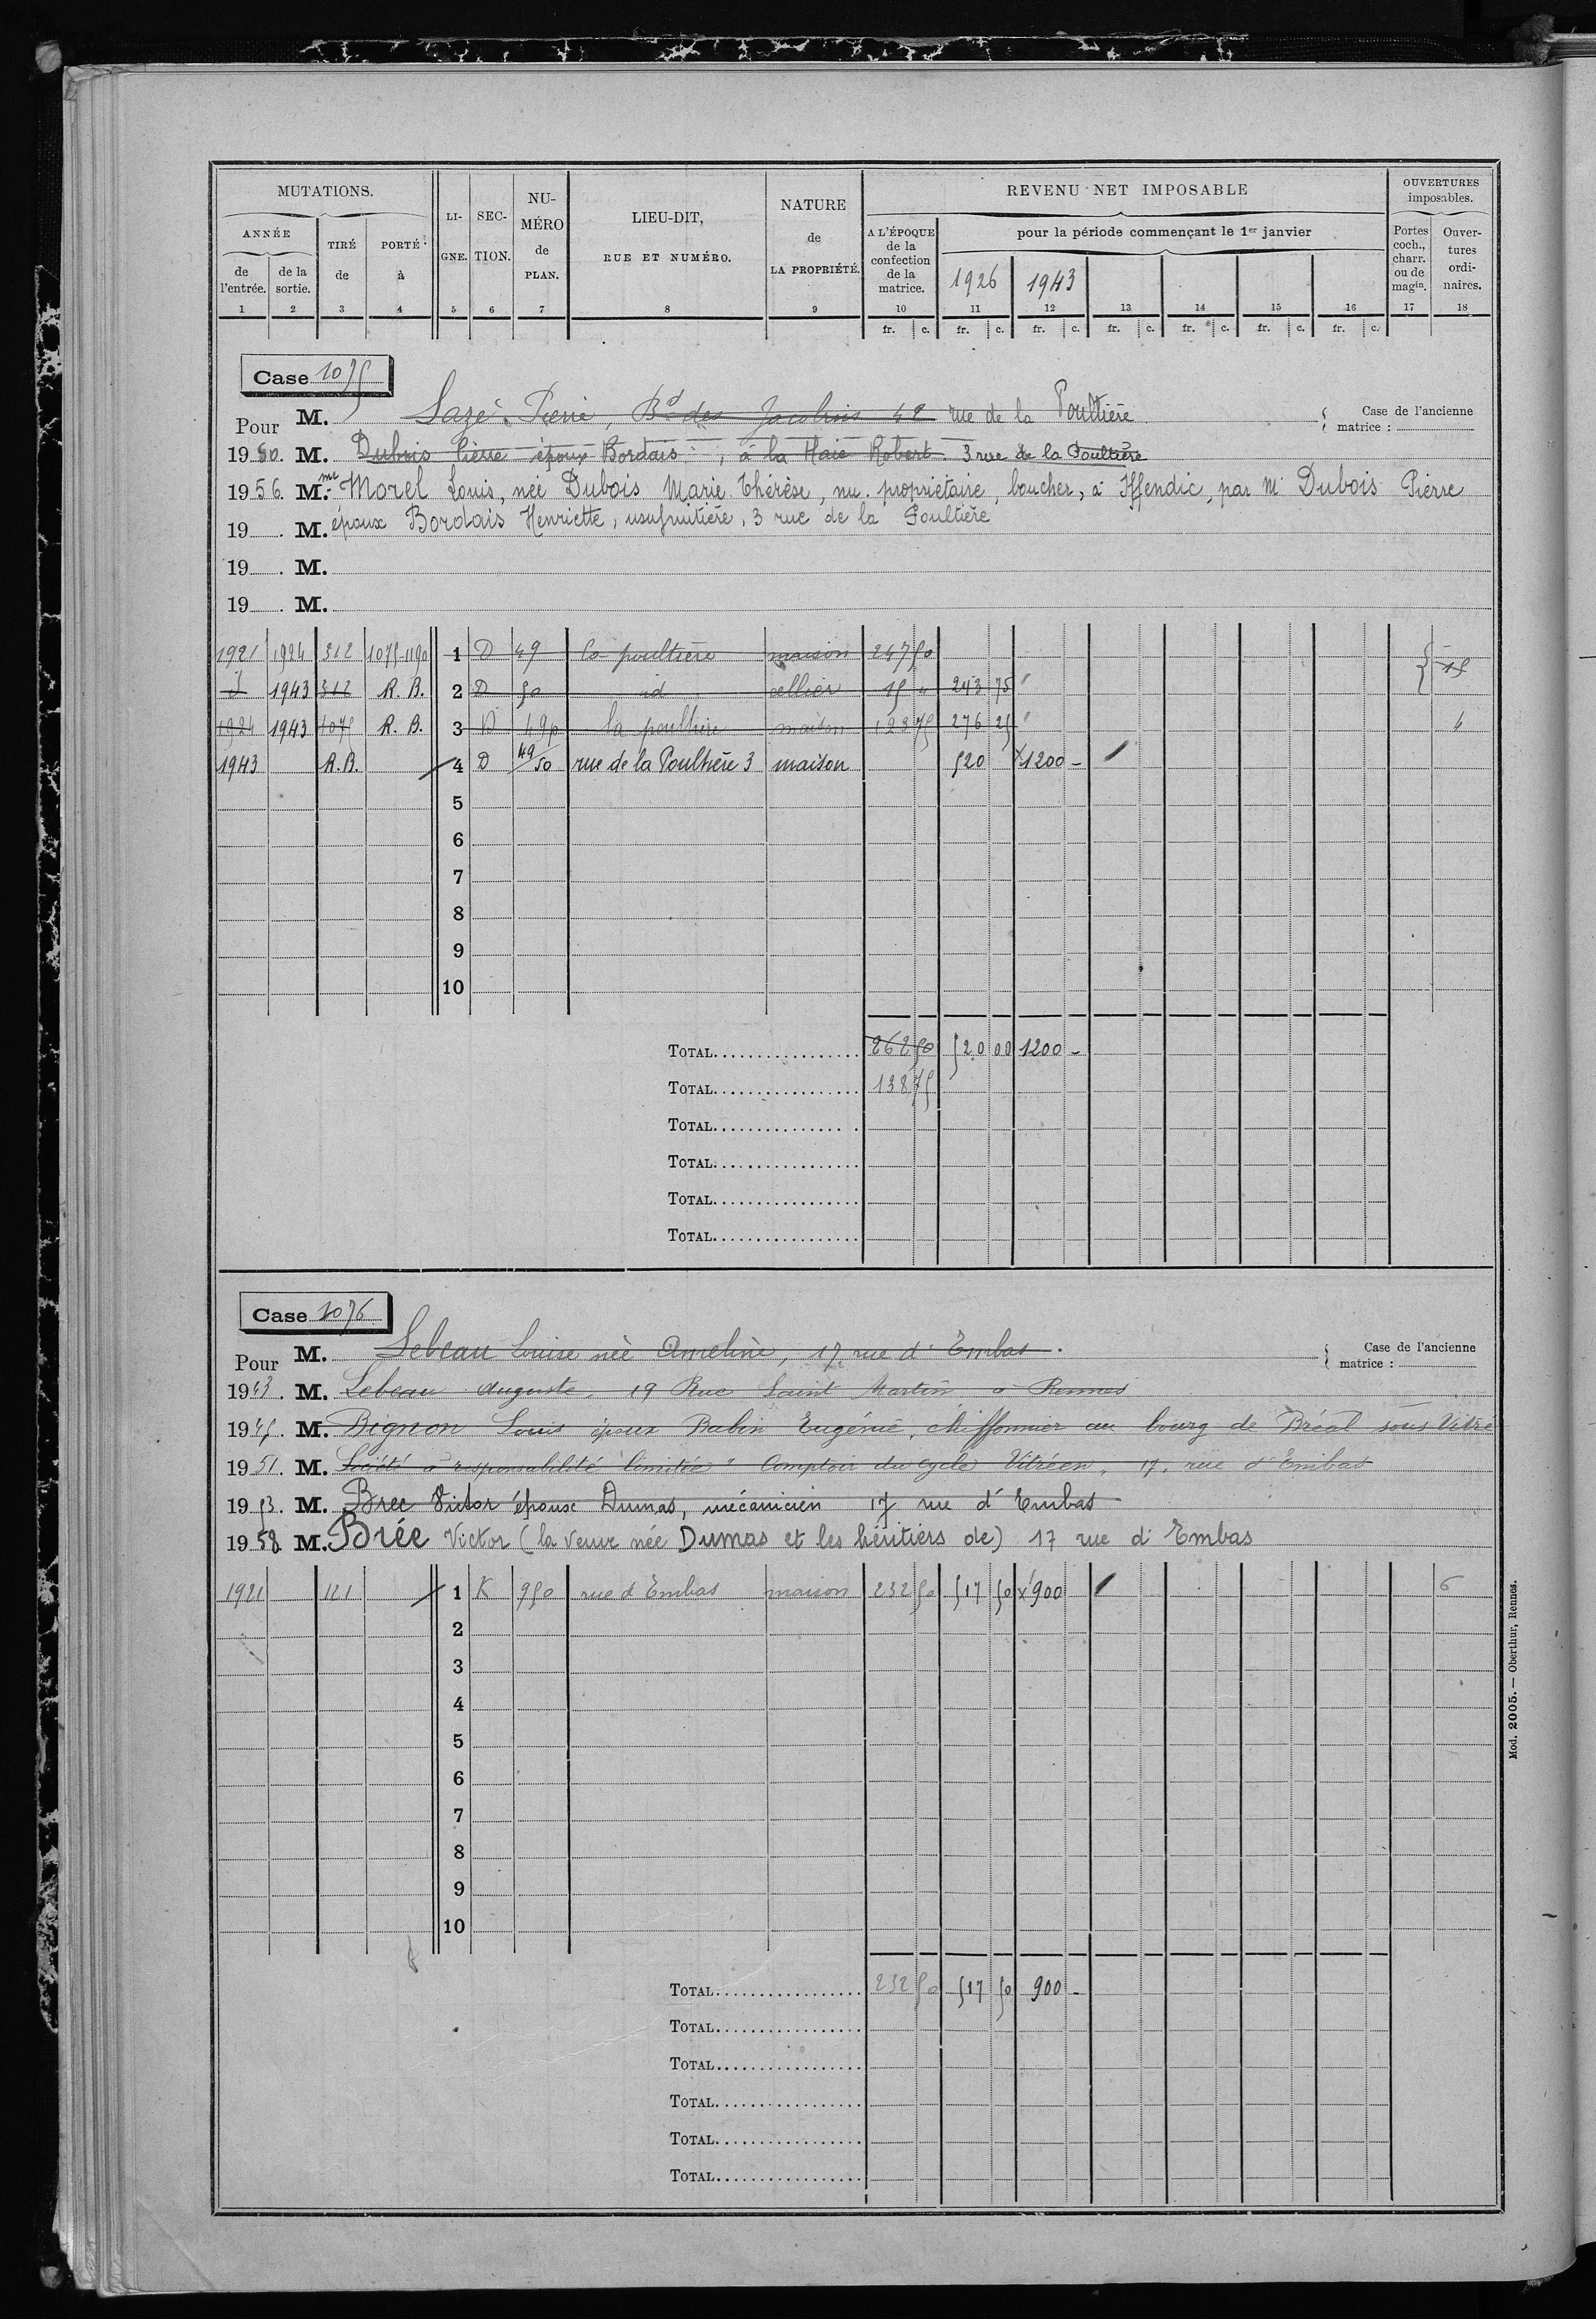 MUTATIONS.
ANNÉE
de l'entrée.
de la sortie.
TIRÉ de
PORTÉ à
LI-GNE.
SEC-TION.
NU-MÉRO de PLAN.
LIEU-DIT, RUE ET NUMÉRO.
NATURE de LA PROPRIÉTÉ.
REVENU NET IMPOSABLE
A L'ÉPOQUE de la confection de la matrice.
pour la période commençant le 1er janvier
1926 1943
OUVERTURES imposables.
Portes coch., charr. ou de magin.
Ouver-tures ordi-naires.
1 2 3 4 5 6 7 8 9 10 11 12 13 14 15 16 17 18
fr. c. fr. c. fr. c. fr. c. fr. c. fr. c. fr. c.
Case 1075
Pour M. Lazé Pierre, Bd des Jacobins 42 rue de la Poultière
Case de l'ancienne matrice :
1950. M. Dubois Pierre époux Bordais, à la Haie Robert 3 rue de la Poultière
1956. Mme Morel Louis, née Dubois Marie Thérèse, nu. propriétaire, boucher, à Iffendic, par M. Dubois Pierre
19 . M. époux Bordais Henriette, usufruitière, 3 rue de la Poultière
19 . M.
19 . M.
1921 1924 312 1075-1190 1 D 49 la poultière maison 247 50 15
d 1943 312 R. B. 2 D 50 id cellier 15 " 243 75 "
1924 1943 1075 R. B. 3 D 49p la poultière maison 123 75 276 25 " 6
1943 R.B. 4 D 49/50 rue de la Poultière 3 maison 520 x1200 -
5
6
7
8
9
10
TOTAL 262 50 520 00 1200 -
TOTAL 138 75
TOTAL
TOTAL
TOTAL
TOTAL
Case 1076
Pour M. Lebeau Louise née Ameline, 17 rue d'Embas.
Case de l'ancienne matrice :
1943. M. Lebeau Auguste, 19 Rue Saint Martin à Rennes
1945. M. Bignon Louis époux Babin Eugénie, chiffonnier au bourg de Bréal sous Vitré
1951. M. Société à responsabilité limitée " Comptoir du Cycle Vitréen, 17, rue d'Embas
1953. M. Brée Victor épouse Dumas, mécanicien 17 rue d'Embas
1958 M. Brée Victor (la veuve née Dumas et les héritiers de) 17 rue d'Embas
1921 121 1 K 950 rue d'Embas maison 232 50 517 50 x900 6
2
3
4
5
6
7
8
9
10
TOTAL 232 50 517 50 900 -
TOTAL
TOTAL
TOTAL
TOTAL
TOTAL
Mod. 2005. — Oberthur, Rennes.